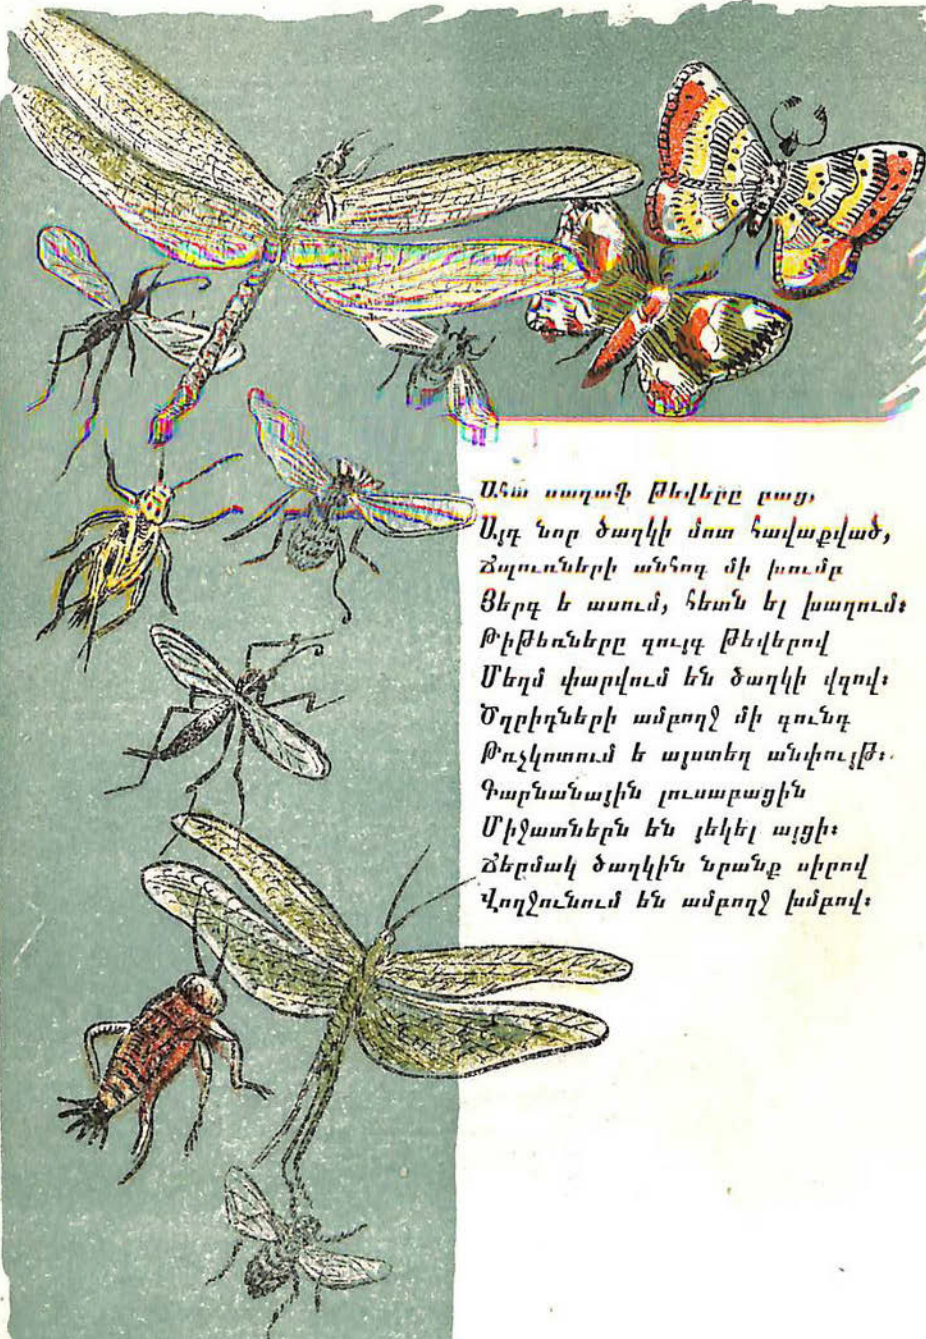 Ահա սադափ թեվերը բաց,
Այդ նոր ծաղկի մոտ հավաքված,
Ճպուռների անհոգ մի խումբ
Յերգ ե ասում, հետն ել խաղում։
Թիթեռները զույգ թեվերով
Մեղմ փարվում են ծաղկի վզով։
Ծղրիդների ամբողջ մի գունդ
Թռչկոտում ե այստեղ անփույթ։
Գարնանային լուսաբացին
Միջատներն են յեկել այցի։
Ճերմակ ծաղկին նրանք սիրով
Վողջունում են ամբողջ խմբով։